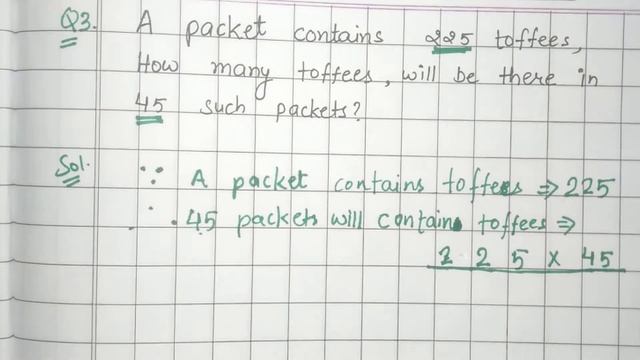 Q3. A packet contains 225 toffees,
How many toffees, will be there in
45 such packets?
Sol. ∵ A packet contains toffees ⇒ 225
∴ 45 packets will contain toffees ⇒
225 × 45